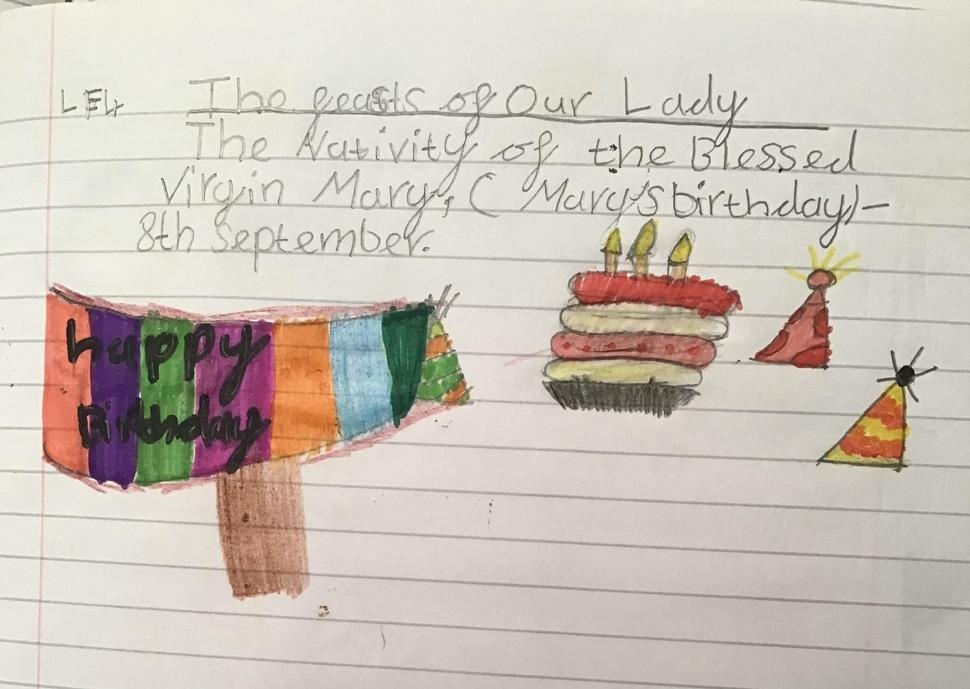 LF4 The feasts of Our Lady
The Nativity of the Blessed
Virgin Mary, ( Mary's birthday) -
8th September.
happy
Birthday